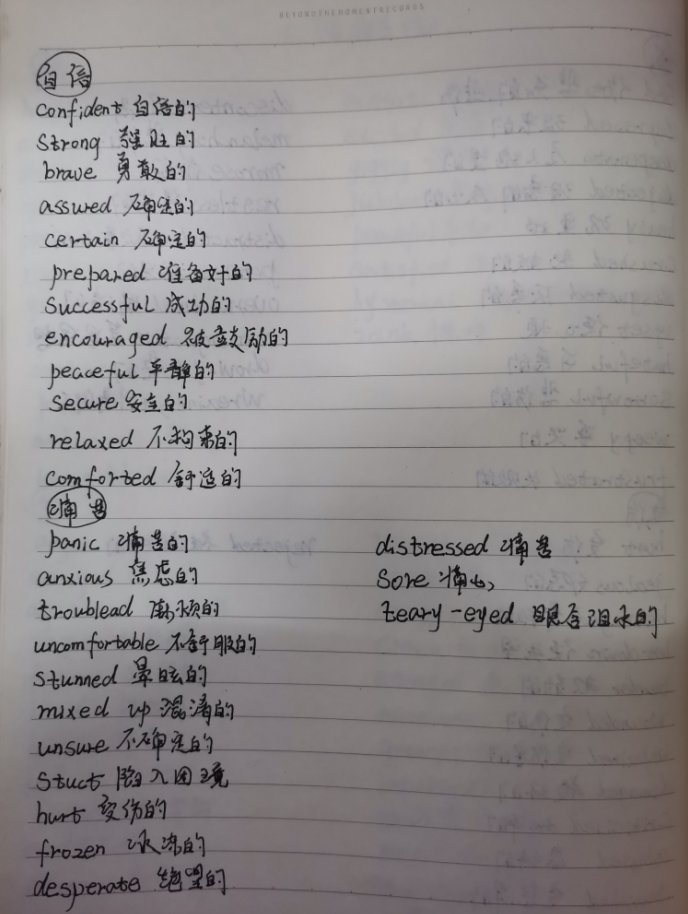 BEYONDTHEMOMENTRECORDS
自信
confident 自信的
strong 强壮的
brave 勇敢的
assured 确定的
certain 确定的
prepared 准备好的
successful 成功的
encouraged 被鼓励的
peaceful 平静的
secure 安全的
relaxed 不拘束的
comforted 舒适的
痛苦
panic 痛苦的
anxious 焦虑的
troublead 烦的
uncomfortable 不舒服的
stunned 晕眩的
mixed up 混淆的
unsure 不确定的
stuct 陷入困境
hurt 受伤的
frozen 冰冻的
desperate 绝望的
distressed 痛苦
sore 痛心
teary-eyed 眼含泪水的